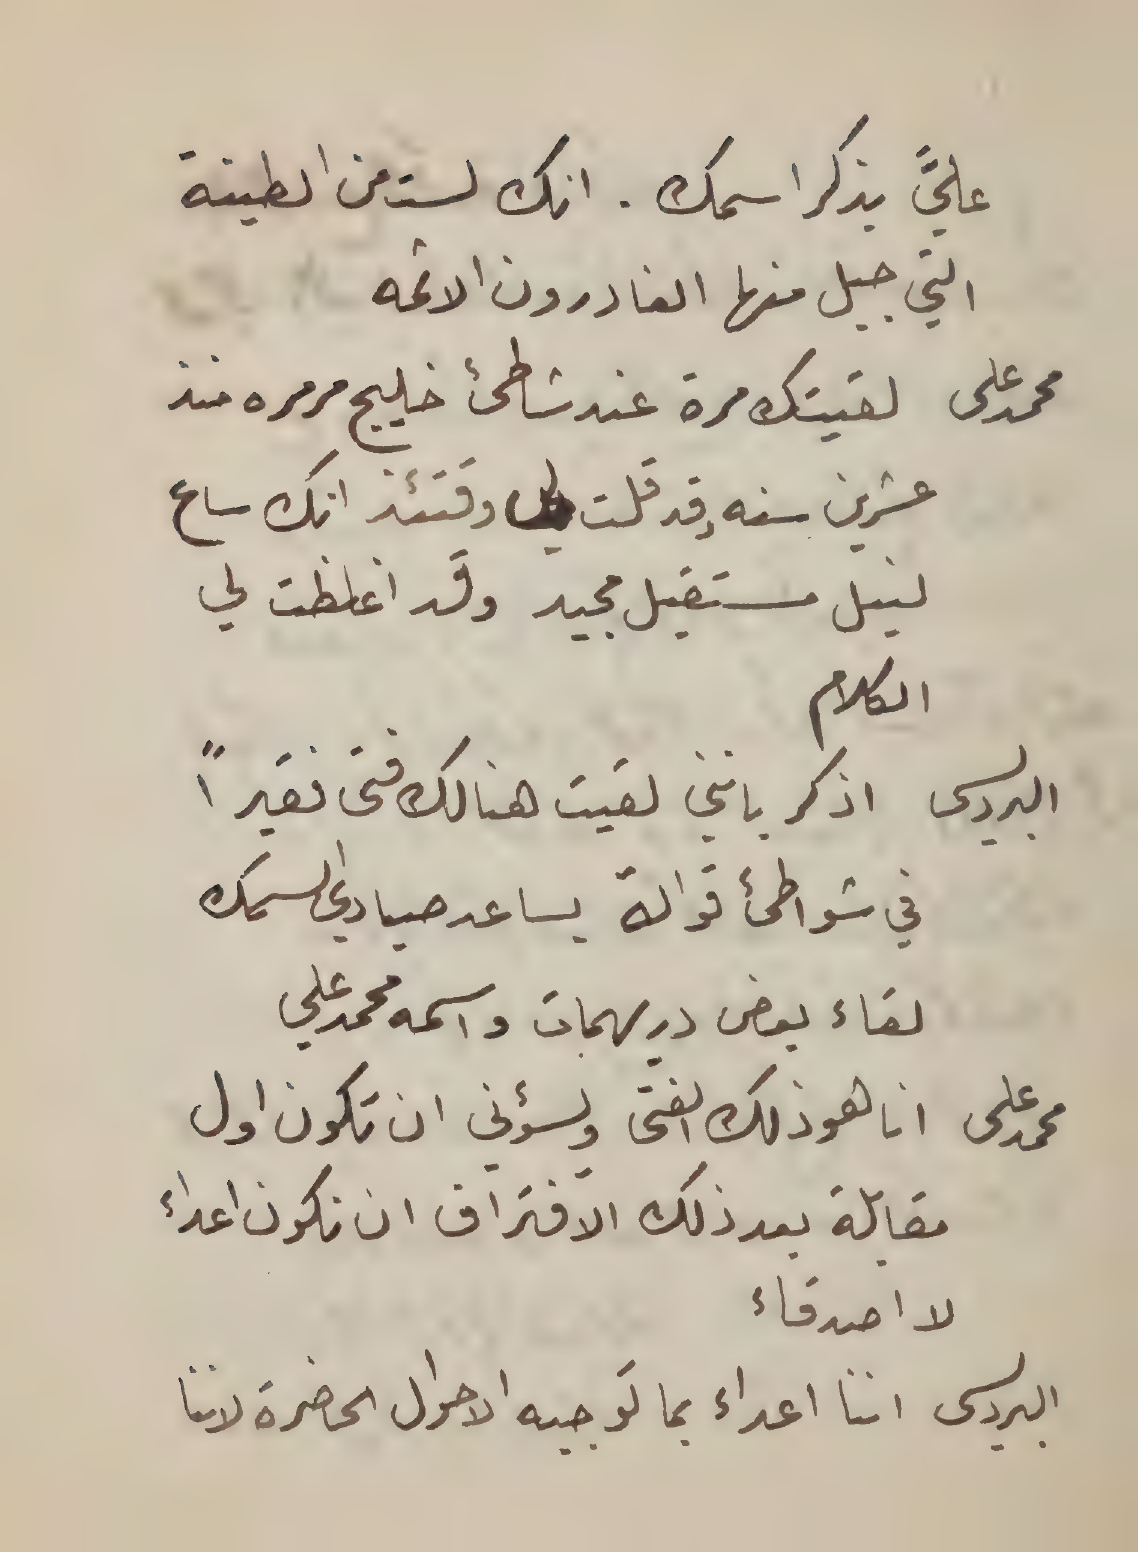 عليَّ بذكر اسمك . انك لست من الطينة
التي جبل منها الغادرون الاثمه
محمد علي لقيتك مرة عند شاطئ خليج مرمره منذ
عشرين سنه وقد قلت لي وقتئذ انك ساع
لنيل مستقبل مجيد وقد اغلظت لي
الكلام
البرديسى اذكر بانني لقيت هنالك فتى فقيراً
في شواطئ قوالة يساعد صيادي السمك
لقاء بعض دريهمات واسمه محمد علي
محمد على انا هو ذلك الفتى ويسؤني ان تكون اول
مقابلة بعد ذلك الافتراق ان نكون اعداء
لا اصدقاء
البرديسى اننا اعداء بما توجبه الاحوال الحاضرة لاننا